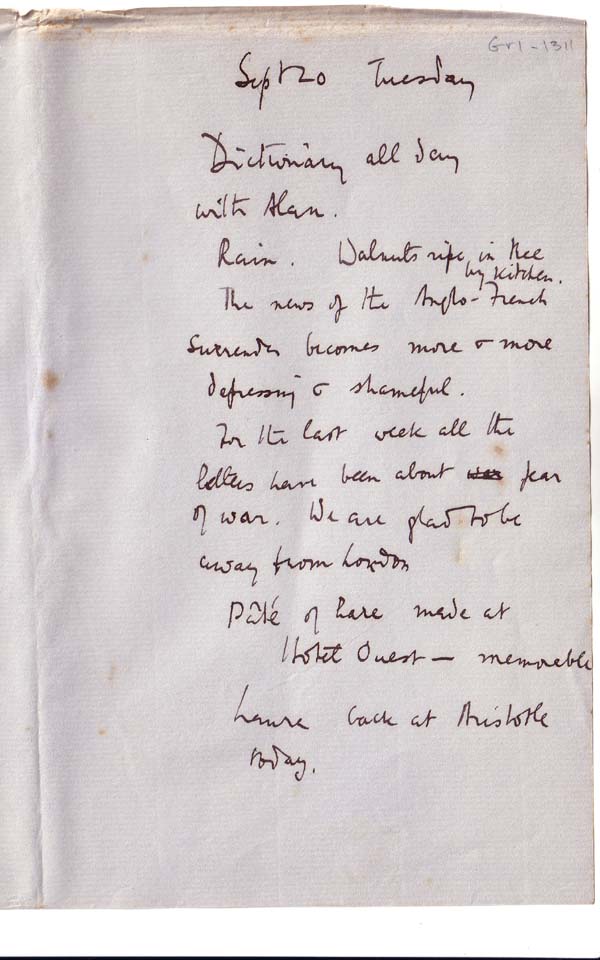 Gr1-1311
Sept 20 Tuesday
Dictionary all day
with Alan.
Rain. Walnuts ripe in tree
by kitchen.
The news of the Anglo-French
surrender becomes more & more
depressing & shameful.
For the last week all the
letters have been about war fear
of war. We are glad to be
away from London
Pâté of hare made at
Hotel Ouest — memorable
Laura back at Aristotle
today.